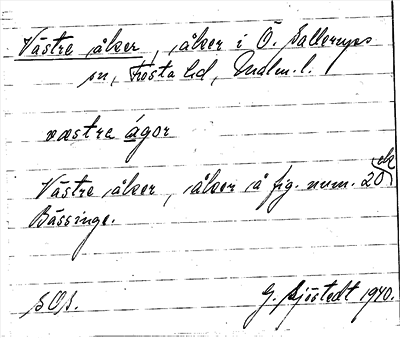 Västre åker, åker i Ö. Sallerups
sn, Frosta hd, Malm. l.
væstre ágor
Västre åker, åker å fig. num. 20
Bässinge.
SOB.
G. Sjöstedt 1940.